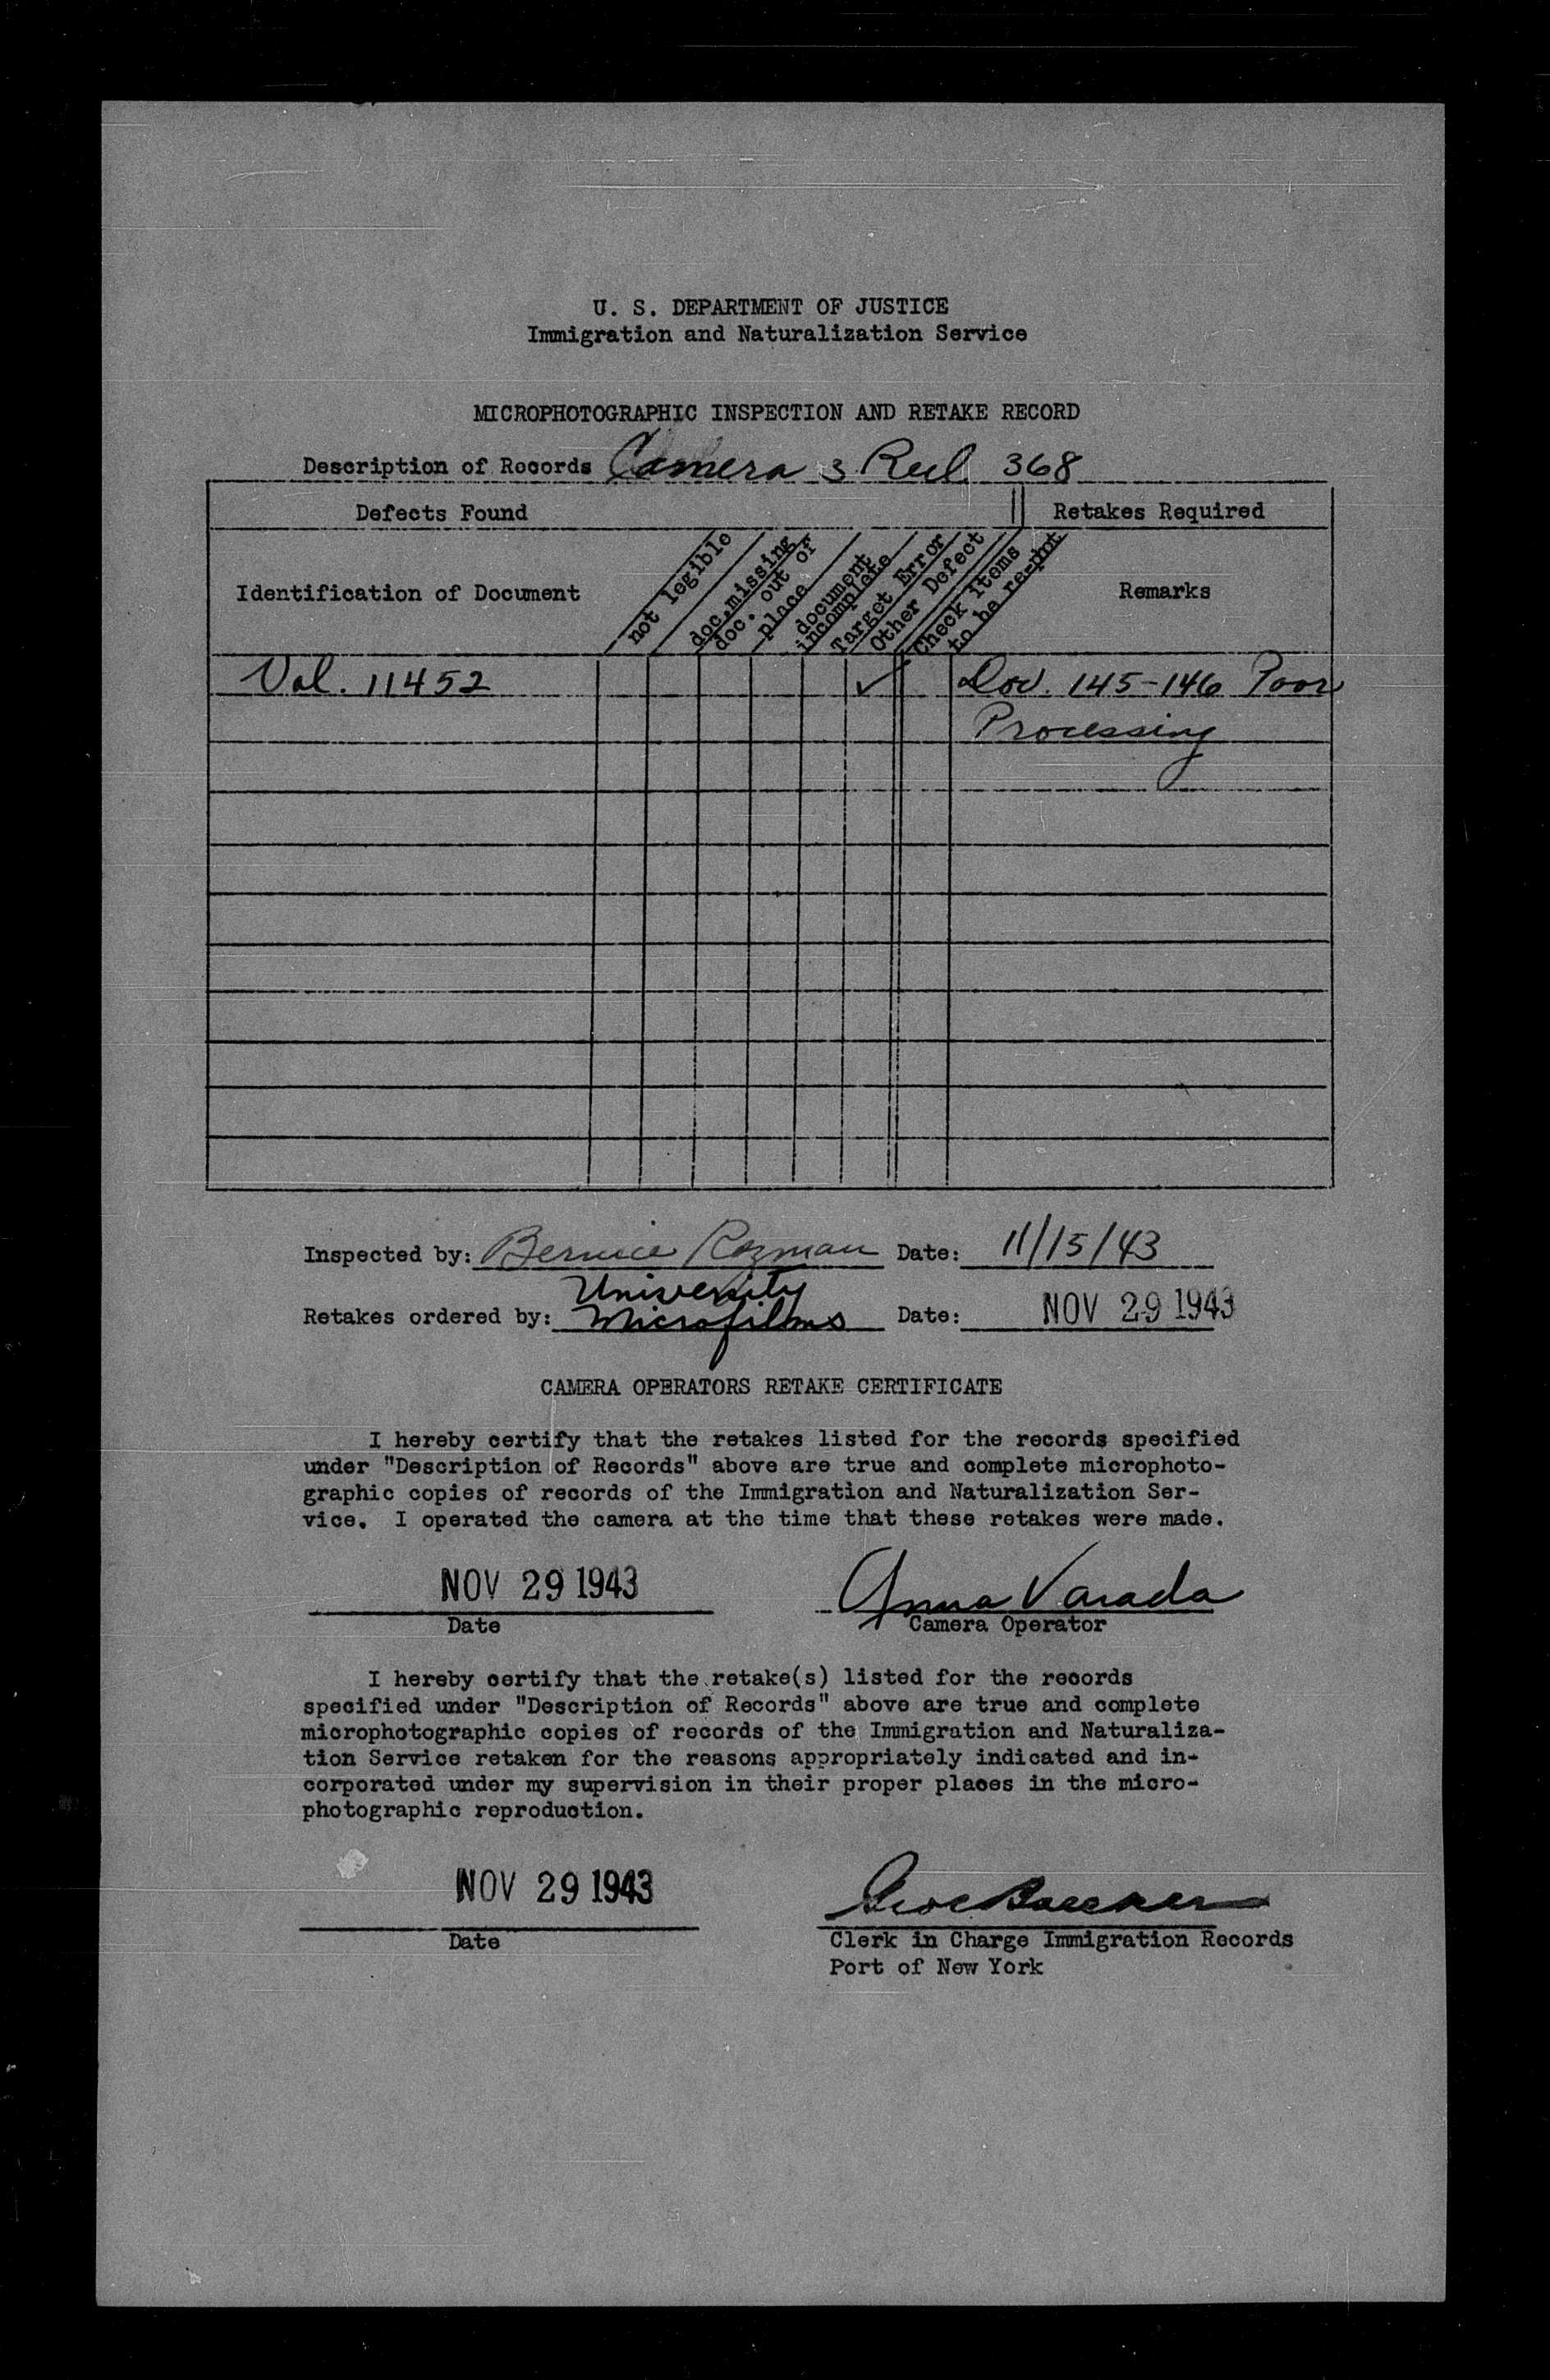 U. S. DEPARTMENT OF JUSTICE
Immigration and Naturalization Service
MICROPHOTOGRAPHIC INSPECTION AND RETAKE RECORD
Description of Records Camera 3 Reel 368
Defects Found Retakes Required
Identification of Document
not legible
doc. missing
doc. out of
place
document
incomplete
Target Error
Other Defect
Check Items
to be re-phot
Remarks
Vol. 11452 ✓ 145-146 Poor
Processing
Inspected by: Bernice Rozman Date: 11/15/43
University
Retakes ordered by: Microfilms Date: NOV 29 1943
CAMERA OPERATORS RETAKE CERTIFICATE
I hereby certify that the retakes listed for the records specified
under "Description of Records" above are true and complete microphoto-
graphic copies of records of the Immigration and Naturalization Ser-
vice. I operated the camera at the time that these retakes were made.
NOV 29 1943 Anna Varada
Date Camera Operator
I hereby certify that the retake(s) listed for the records
specified under "Description of Records" above are true and complete
microphotographic copies of records of the Immigration and Naturaliza-
tion Service retaken for the reasons appropriately indicated and in-
corporated under my supervision in their proper places in the micro-
photographic reproduction.
NOV 29 1943
Date Clerk in Charge Immigration Records
Port of New York